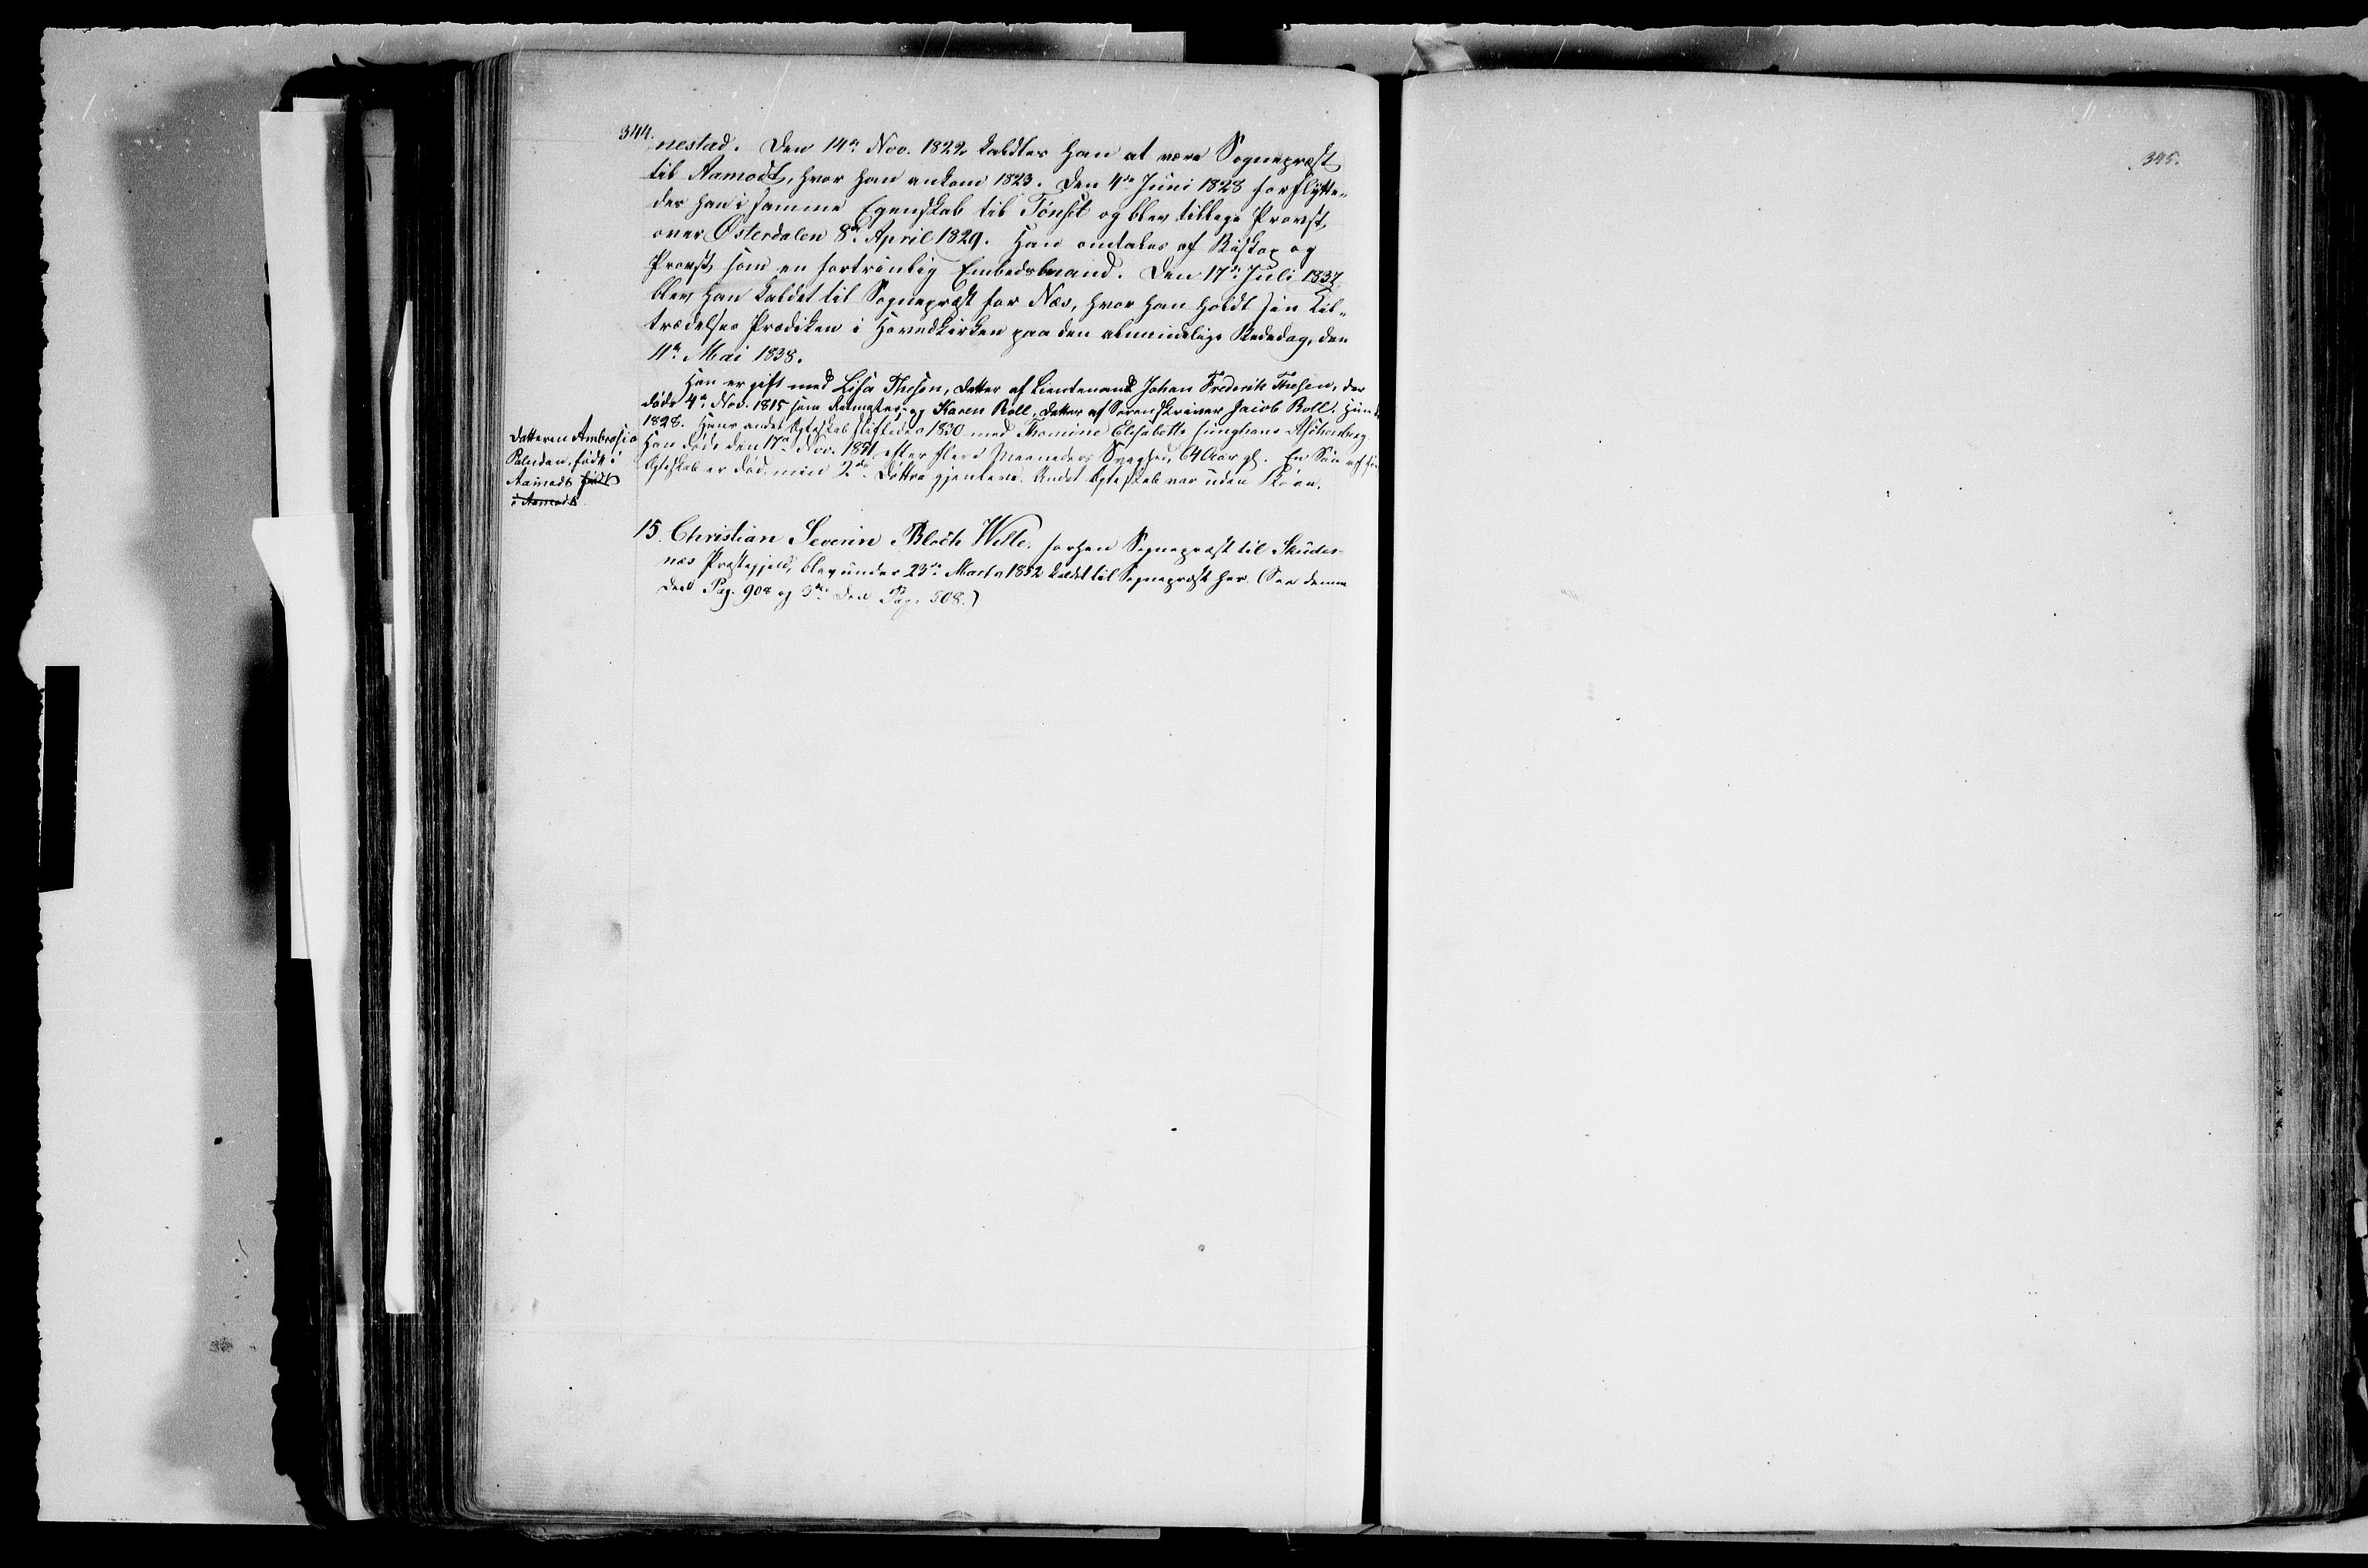 344.
nestad. Den 14de Nov. 1822 kaldtes han at være Sognepræst
til Aamodt, hvor han ankom 1823. Den 4de Juni 1828 forflytte-
des han i samme Egenskab til Tönset og blev tillige Provst
over Østerdalen 8de April 1829. Han omtales af Biskop og
Provst som en fortrinlig Embedsmand. Den 17de Juli 1837
blev han kaldet til Sognepræst for Næs, hvor han holdt sin Til-
trædelses Prædiken i Hovedkirken paa den almindelige Bededag, den
11te Mai 1838.
Han er gift med Lisa Thesen, Datter af Lieutenant Johan Frederik Thesen, der
døde 4de Nov. 1815 som Ritmester og Karen Roll, Datter af Sorenskriver Jacob Roll. Hun
1828. Hans andet Ægteskab stiftedes 1830 med Thomine Elisabeth Junghans Aschenberg.
Han døde den 17de Nov. 1851 efter flere Maaneders Svaghed, 64 Aar gl. En Søn af
Ægteskab er død, men 2de Døttre gjenleve. Andet Ægteskab var uden Børn.
Datteren Ambrosia
Paludan, født i
Aamodt født
i Aamodt
15. Christian Severin Bloch Wille, forhen Sognepræst til Skudes-
næs Præstegjeld, blev under 23de Marts 1852 kaldet til Sognepræst her. (See denne
Deel Pag. 908 og Deel Pag. 508.)
345.